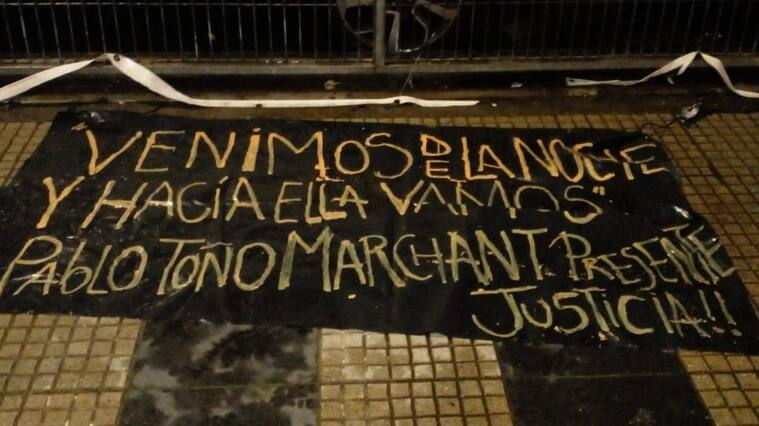 "VENIMOS DE LA NOCHE
Y HACÍA ELLA VAMOS"
PABLO TOÑO MARCHANT PRESENTE
JUSTICIA!!